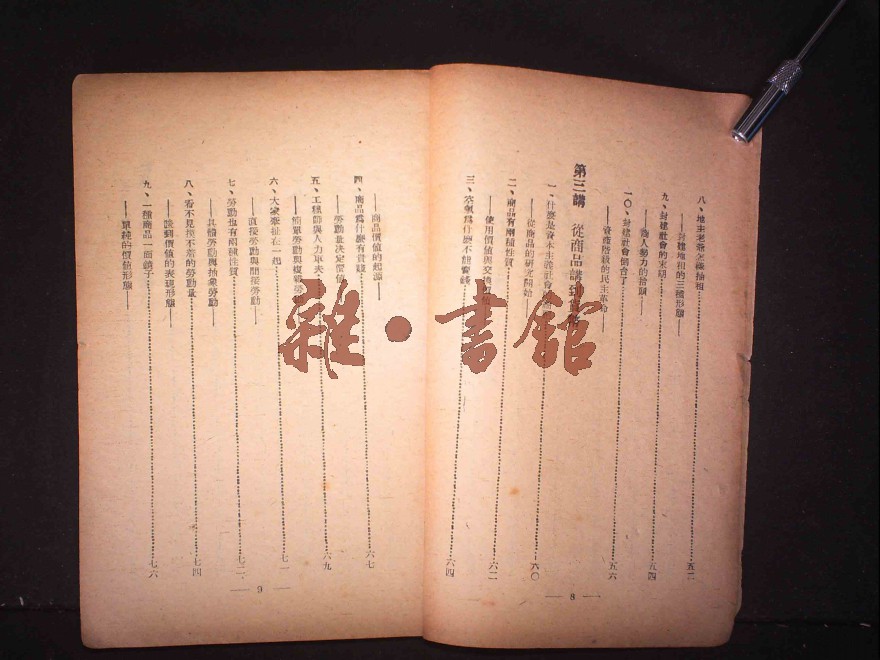 八、地主老爺怎樣抽租……五二
——封建地租的三種形態——
九、封建社會的末期……五四
——商人勢力的抬頭——
一〇、封建社會倒台了……五六
——資產階級的民主革命——
第三講　從商品講到
一、什麼是資本主義社會……六〇
——從商品的研究開始——
二、商品有兩種性質……六二
——使用價值與交換
三、空氣爲什麼不能賣錢……六四
— 8 —
——商品價值的起源——
四、商品爲什麼有貴賤……六七
——勞動量決定價值
五、工程師與人力車夫……六九
——簡單勞動與複雜勞
六、大家牽扯在一起……七一
——直接勞動與間接勞動——
七、勞動也有兩種性質……七二
——具體勞動與抽象勞動——
八、看不見摸不着的勞動量……七四
——談到價值的表現形態——
九、一種商品一面鏡子……七六
——單純的價值形態——
— 9 —
雜·書館